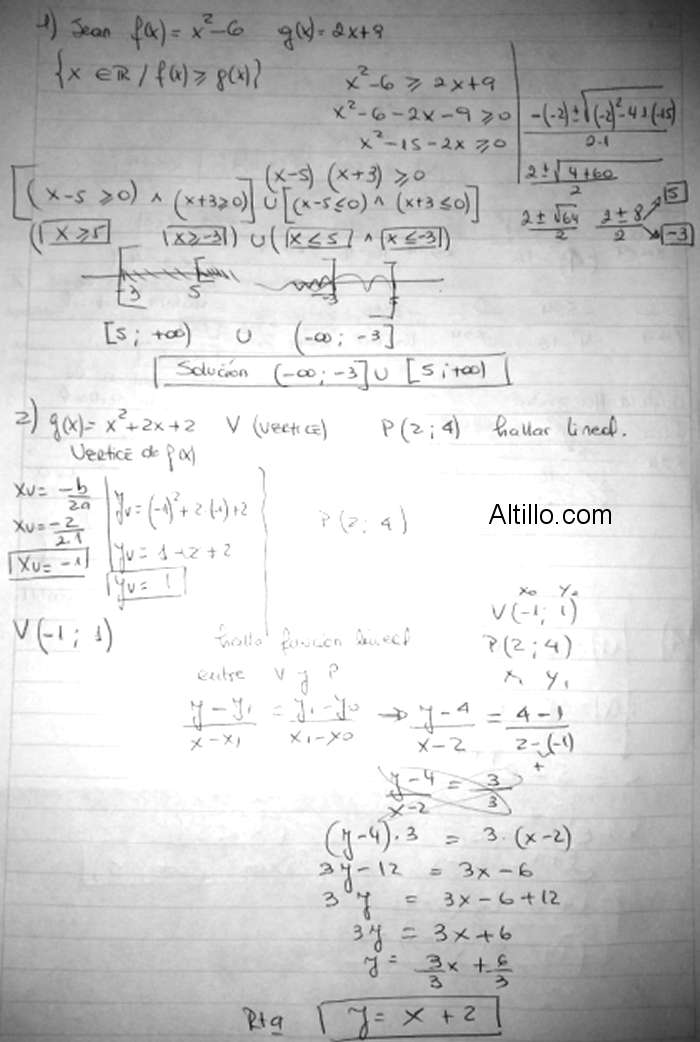 1) Sean f(x) = x²-6 g(x) = 2x+9
{x ∈ ℝ / f(x) ≥ g(x)}
x²-6 ≥ 2x+9
x²-6-2x-9 ≥ 0
x²-15-2x ≥ 0
-(-2) ± √((-2)²-4·1·(-15)) / 2·1
2 ± √(4+60) / 2
2 ± √64 / 2
2 ± 8 / 2
5
-3
(x-5) (x+3) ≥ 0
[(x-5 ≥ 0) ∧ (x+3 ≥ 0)] ∪ [(x-5 ≤ 0) ∧ (x+3 ≤ 0)]
(x ≥ 5 x ≥ -3) ∪ (x ≤ 5 ∧ x ≤ -3)
-3 5 -3
[5 ; +∞) ∪ (-∞ ; -3]
Solución (-∞ ; -3] ∪ [5 ; +∞)
2) g(x) = x²+2x+2 V (vertice) P(2 ; 4) hallar lineal.
Vertice de f(x)
Xv = -b / 2a
Xv = -2 / 2.1
Xv = -1
Yv = (-1)²+2.(-1)+2
Yv = 1-2+2
Yv = 1
P(2 ; 4)
Altillo.com
V(-1 ; 1)
x₀ y₀
V(-1 ; 1)
P(2 ; 4)
x₁ y₁
halla función lineal
entre V y P
y-y₁ / x-x₁ = y₁-y₀ / x₁-x₀ → y-4 / x-2 = 4-1 / 2-(-1)
+
y-4 / x-2 = 3 / 3
(y-4).3 = 3.(x-2)
3y-12 = 3x-6
3y = 3x-6+12
3y = 3x+6
y = 3/3 x + 6/3
Rta y = x + 2